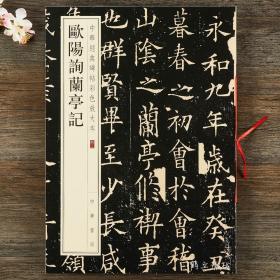 中華經典碑帖彩色放大本
歐陽詢蘭亭記
中華書局
永和九年歲在癸丑
暮春之初會于會稽
山陰之蘭亭修
也群賢畢至少長咸